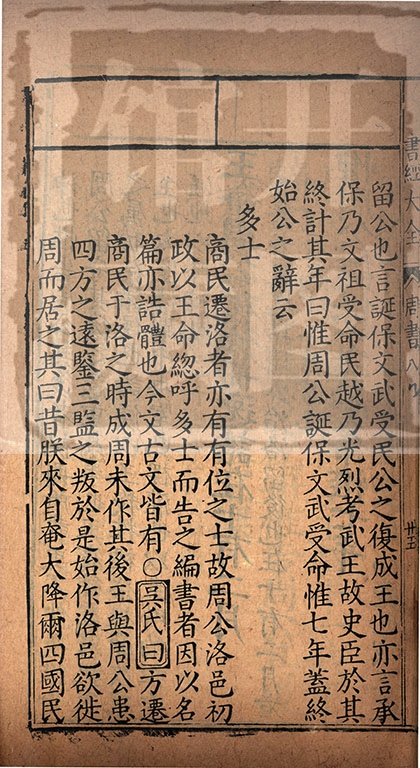 留公也言誕保文武受民公之復成王也亦言承
保乃文祖受命民越乃光烈考武王故史臣於其
終計其年曰惟周公誕保文武受命惟七年蓋終
始公之辭云
多士
商民遷洛者亦有有位之士故周公洛邑初
政以王命緫呼多士而告之編書者因以名
篇亦誥體也今文古文皆有○吴氏曰方遷
商民于洛之時成周未作其後王與周公患
四方之遠鑒三監之叛於是始作洛邑欲徙
周而居之其曰昔朕來自奄大降爾四國民